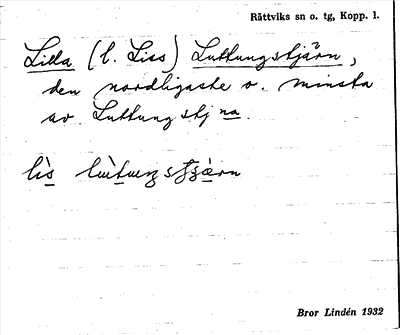 Rättviks sn o. tg, Kopp. l.
Lilla (l. Liss) Luttungstjärn,
den nordligaste o. minsta
av Luttungstj na.
Bror Lindén 1932